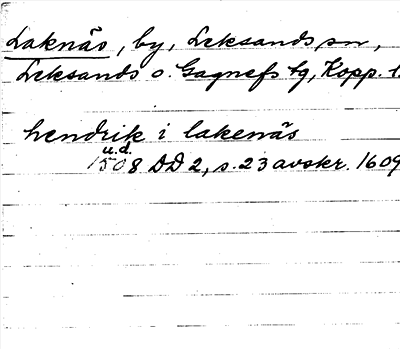 Laknäs, by, Leksands sn,
Leksands o. Gagnefs tg, Kopp. l.
hendrik i lakenäs
u.d.
1508 DD 2, s. 23 avskr. 1609